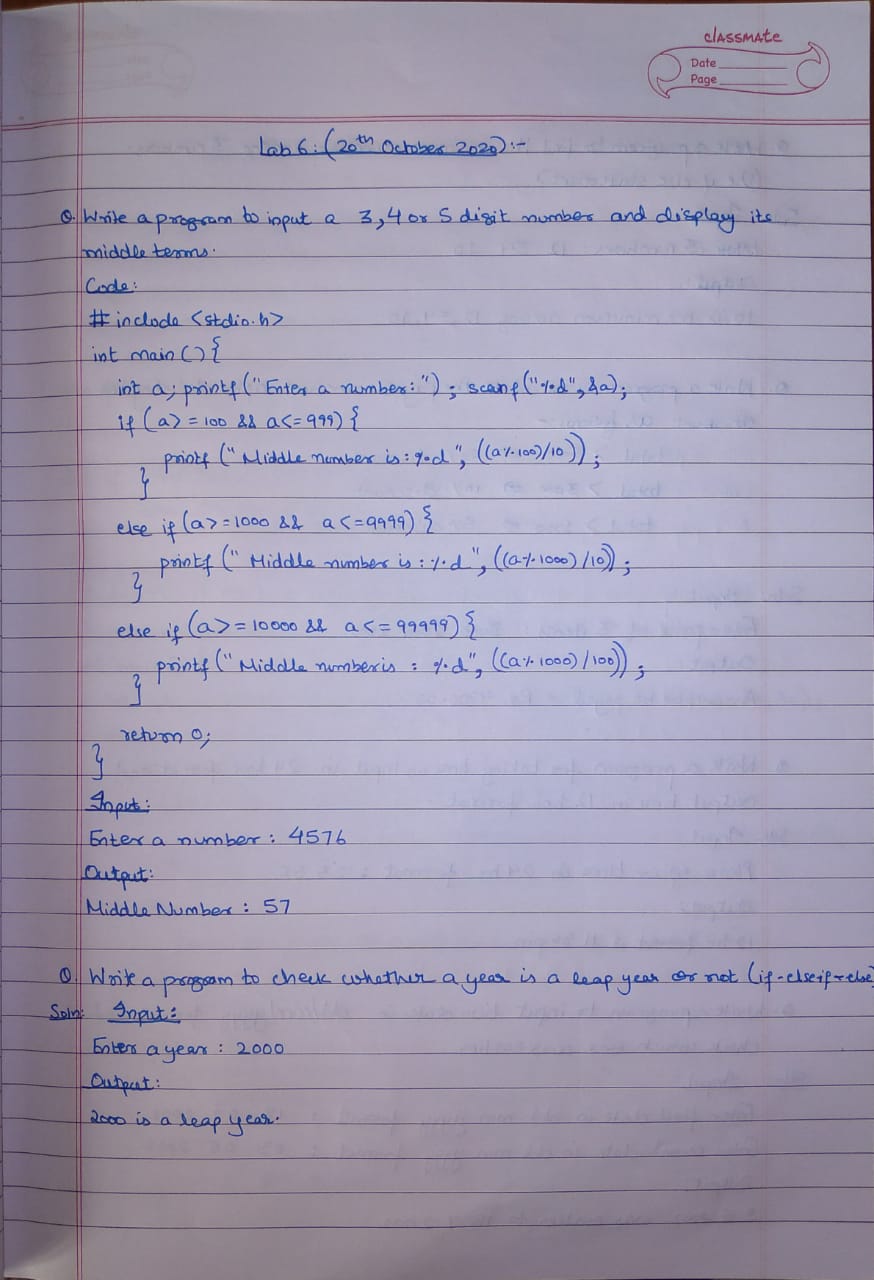 classmate
Date
Page
Lab 6: (20th October 2020):-
Q. Write a program to input a 3,4 or 5 digit number and display its
middle terms.
Code:
# include <stdio.h>
int main () {
int a; printf("Enter a number:"); scanf("%d", &a);
if (a>=100 && a<=999) {
printf (" Middle number is: %d", ((a%100)/10));
}
else if (a>=1000 && a<=9999) {
printf (" Middle number is : %d", ((a%1000)/10));
}
else if (a>=10000 && a<=99999) {
printf (" Middle number is : %d", ((a%1000)/100));
}
return 0;
}
Input:
Enter a number : 4576
Output:
Middle Number : 57
Q. Write a program to check whether a year is a leap year or not (if-else if-else)
Soln: Input:
Enter a year : 2000
Output:
2000 is a leap year.